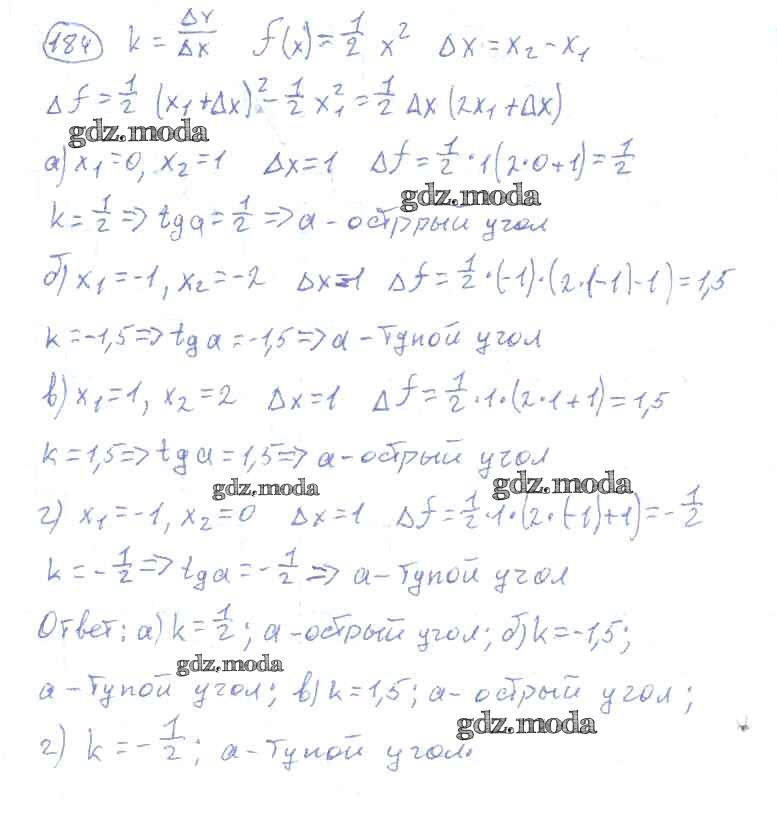 184 k = ΔY/ΔX f(x) = 1/2 x² Δx = x₂ - x₁
Δf = 1/2 (x₁ + Δx)² - 1/2 x₁² = 1/2 Δx (2x₁ + Δx)
gdz.moda
а) x₁ = 0, x₂ = 1 Δx = 1 Δf = 1/2 · 1(2·0+1) = 1/2
gdz.moda
k = 1/2 => tg a = 1/2 => a - остррый угол
б) x₁ = -1, x₂ = -2 Δx = -1 Δf = 1/2 · (-1) · (2·(-1) - 1) = 1,5
k = -1,5 => tg a = -1,5 => a - тупой угол
в) x₁ = 1, x₂ = 2 Δx = 1 Δf = 1/2 · 1 · (2·1+1) = 1,5
k = 1,5 => tg a = 1,5 => a - острый угол
gdz.moda gdz.moda
г) x₁ = -1, x₂ = 0 Δx = 1 Δf = 1/2 · 1 · (2·(-1)+1) = -1/2
k = -1/2 => tg a = -1/2 => a - тупой угол
Ответ: а) k = 1/2; a - острый угол; б) k = -1,5;
gdz.moda
a - тупой угол; в) k = 1,5; a - острый угол;
gdz.moda
г) k = -1/2; a - тупой угол.